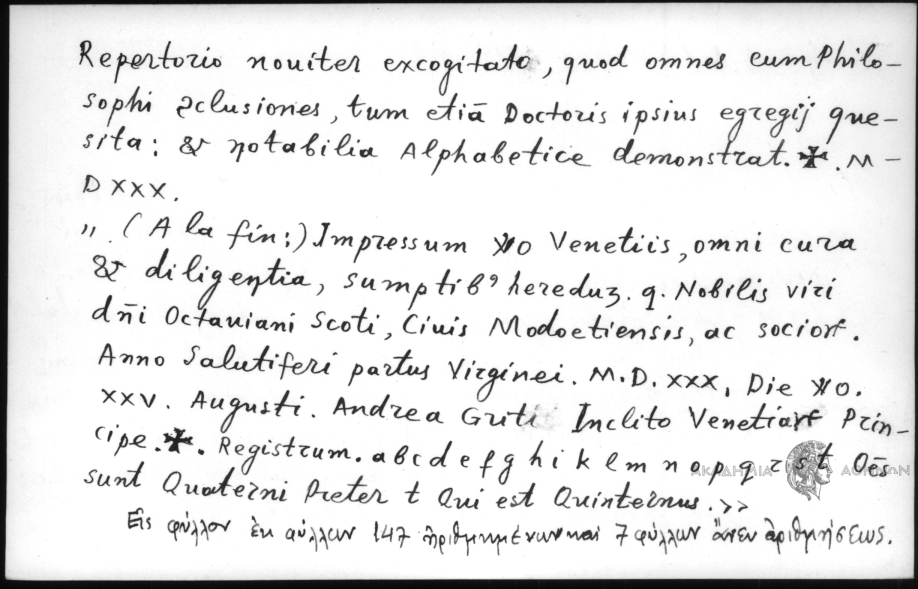 Repertorio nouiter excogitato, quod omnes cum Philo-
sophi ↄclusiones, tum etiã Doctoris ipsius egregij que-
sita: & notabilia Alphabetice demonstrat. ✠. M-
DXXX.
„ (A la fin:) Impressum Venetiis, omni cura
& diligentia, sumptibꝰ hereduꝫ. q. Nobilis viri
dñi Octauiani Scoti, Ciuis Modoetiensis, ac socioꝝ.
Anno Salutiferi partus Virginei. M.D.XXX, Die
XXV. Augusti. Andrea Griti Inclito Venetiaꝝ Prin-
cipe. ✠. Registrum. a b c d e f g h i k l m n o p q r s t Oēs
sunt Quaterni Preter t Qui est Quinternus. >>
Εἰς φύλλον ἐκ φύλλων 147 ἠριθμημένων καὶ 7 φύλλων ἄνευ ἀριθμήσεως.
ΑΚΑΔΗΜΙΑ ΑΘΗΝΩΝ